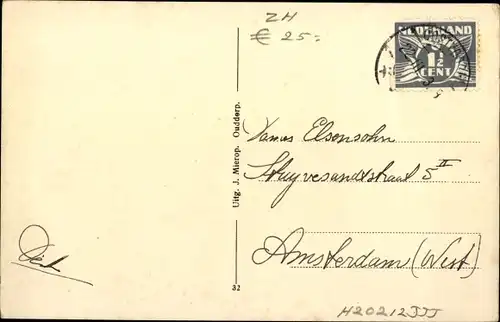 ZH
€ 25:
NEDERLAND
1½
CENT
Uitg. J. Mierop. Ouddorp.
Elsensohn
Stuyvesandtstraat 5 II
Amsterdam (West)
32
H20212JJJ